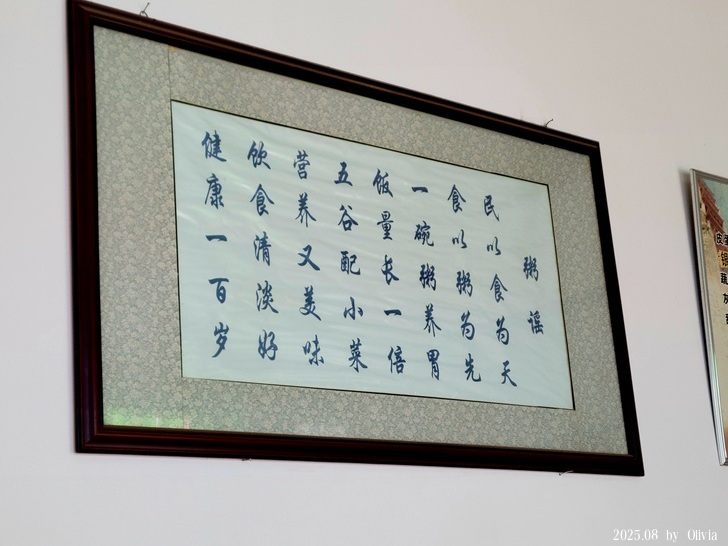 粥谣
民以食为天
食以粥为先
一碗粥养胃
饭量长一倍
五谷配小菜
营养又美味
饮食清淡好
健康一百岁
2025.08 by Olivia